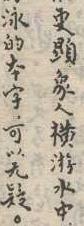 更顯象人橫游水中
泳的本字可以无疑。